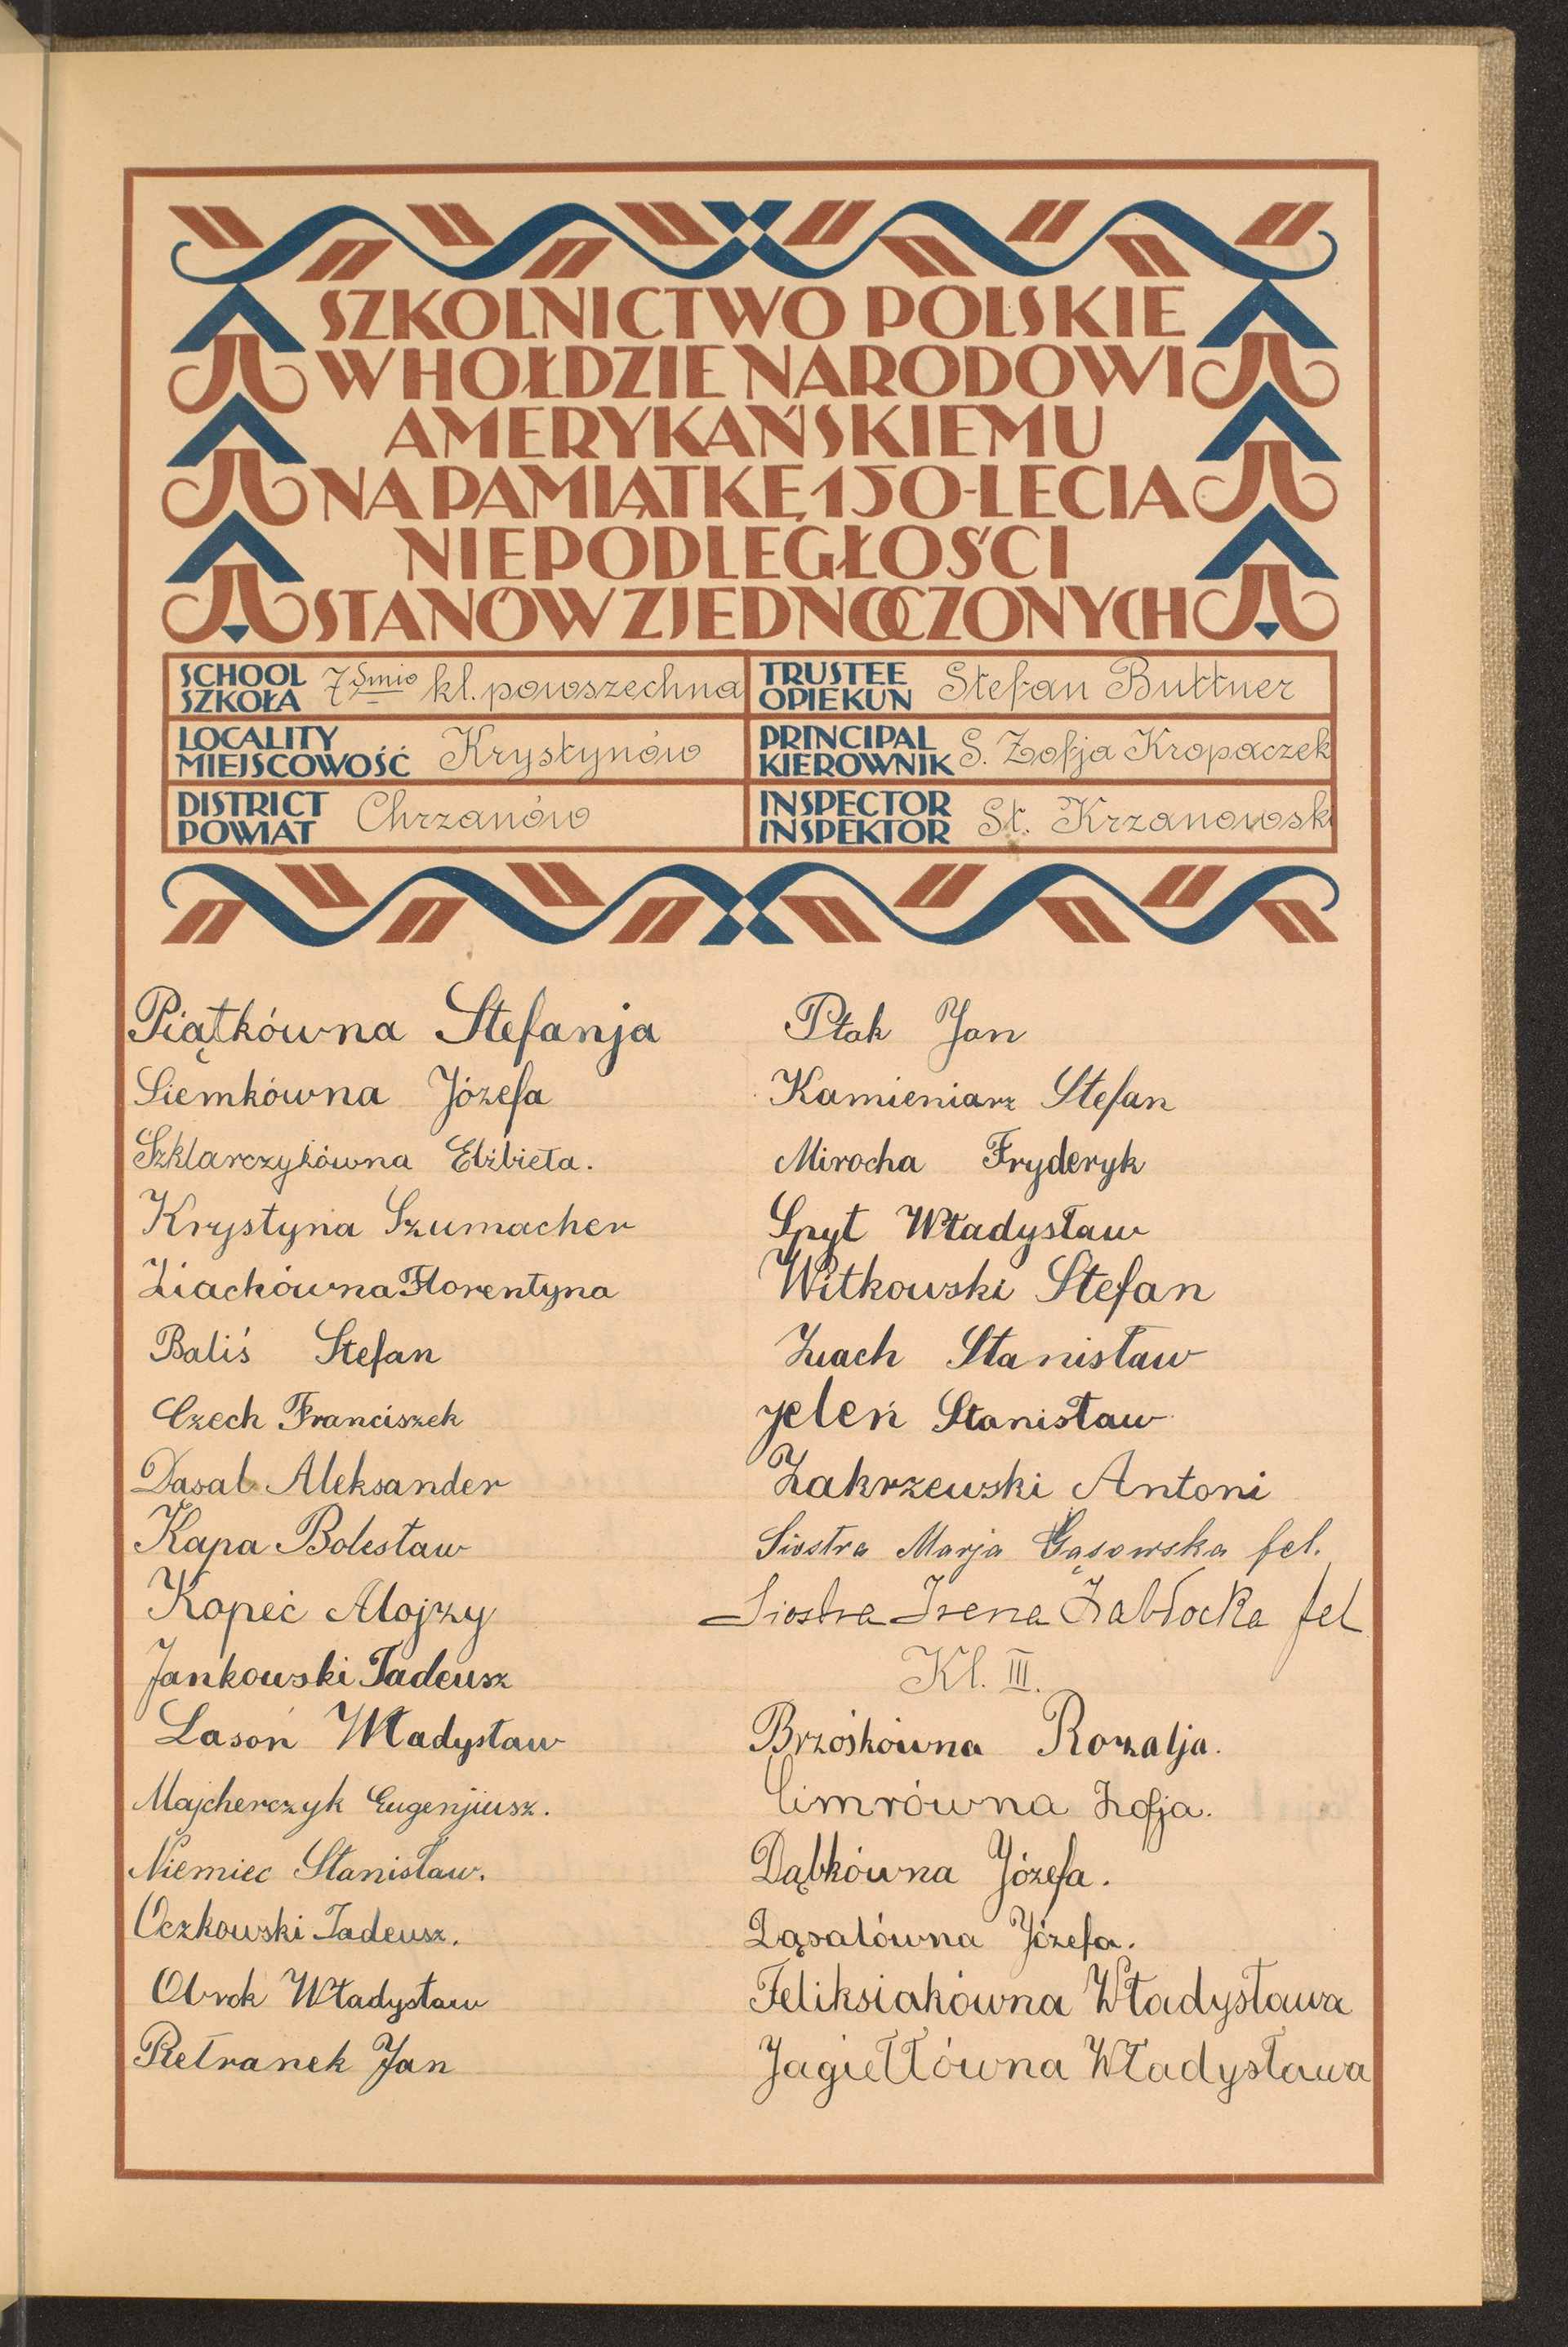 SZKOLNICTWO POLSKIE
W HOŁDZIE NARODOWI
AMERYKAŃSKIEMU
NA PAMIĄTKĘ 150-LECIA
NIEPODLEGŁOŚCI
STANÓW ZJEDNOCZONYCH
SCHOOL
SZKOŁA 7śmio kl. powszechna
TRUSTEE
OPIEKUN Stefan Buttner
LOCALITY
MIEJSCOWOŚĆ Krystynów
PRINCIPAL
KIEROWNIK S. Zofja Kropaczek
DISTRICT
POWIAT Chrzanów
INSPECTOR
INSPEKTOR St. Krzanowski
Piątkówna Stefanja
Siemkówna Józefa
Szklarczykówna Elżbieta.
Krystyna Szumacher
Ziachówna Florentyna
Baliś Stefan
Czech Franciszek
Dasal Aleksander
Kapa Bolesław
Kopeć Alojzy
Jankowski Tadeusz
Lasoń Władysław
Majcherczyk Eugenjusz.
Niemiec Stanisław.
Oczkowski Tadeusz.
Obrok Władysław
Retranek Jan
Ptak Jan
Kamieniarz Stefan
Mirocha Fryderyk
Spyt Władysław
Witkowski Stefan
Ziach Stanisław
Jeleń Stanisław
Zakrzewski Antoni
Siostra Marja Gąsowska fel.
Siostra Irena Zabłocka fel
Kl. III.
Brzóskówna Rozalja.
Cimrówna Zofja.
Dąbkówna Józefa.
Dąsalówna Józefa.
Feliksiakówna Władysława
Jagiełłówna Władysława